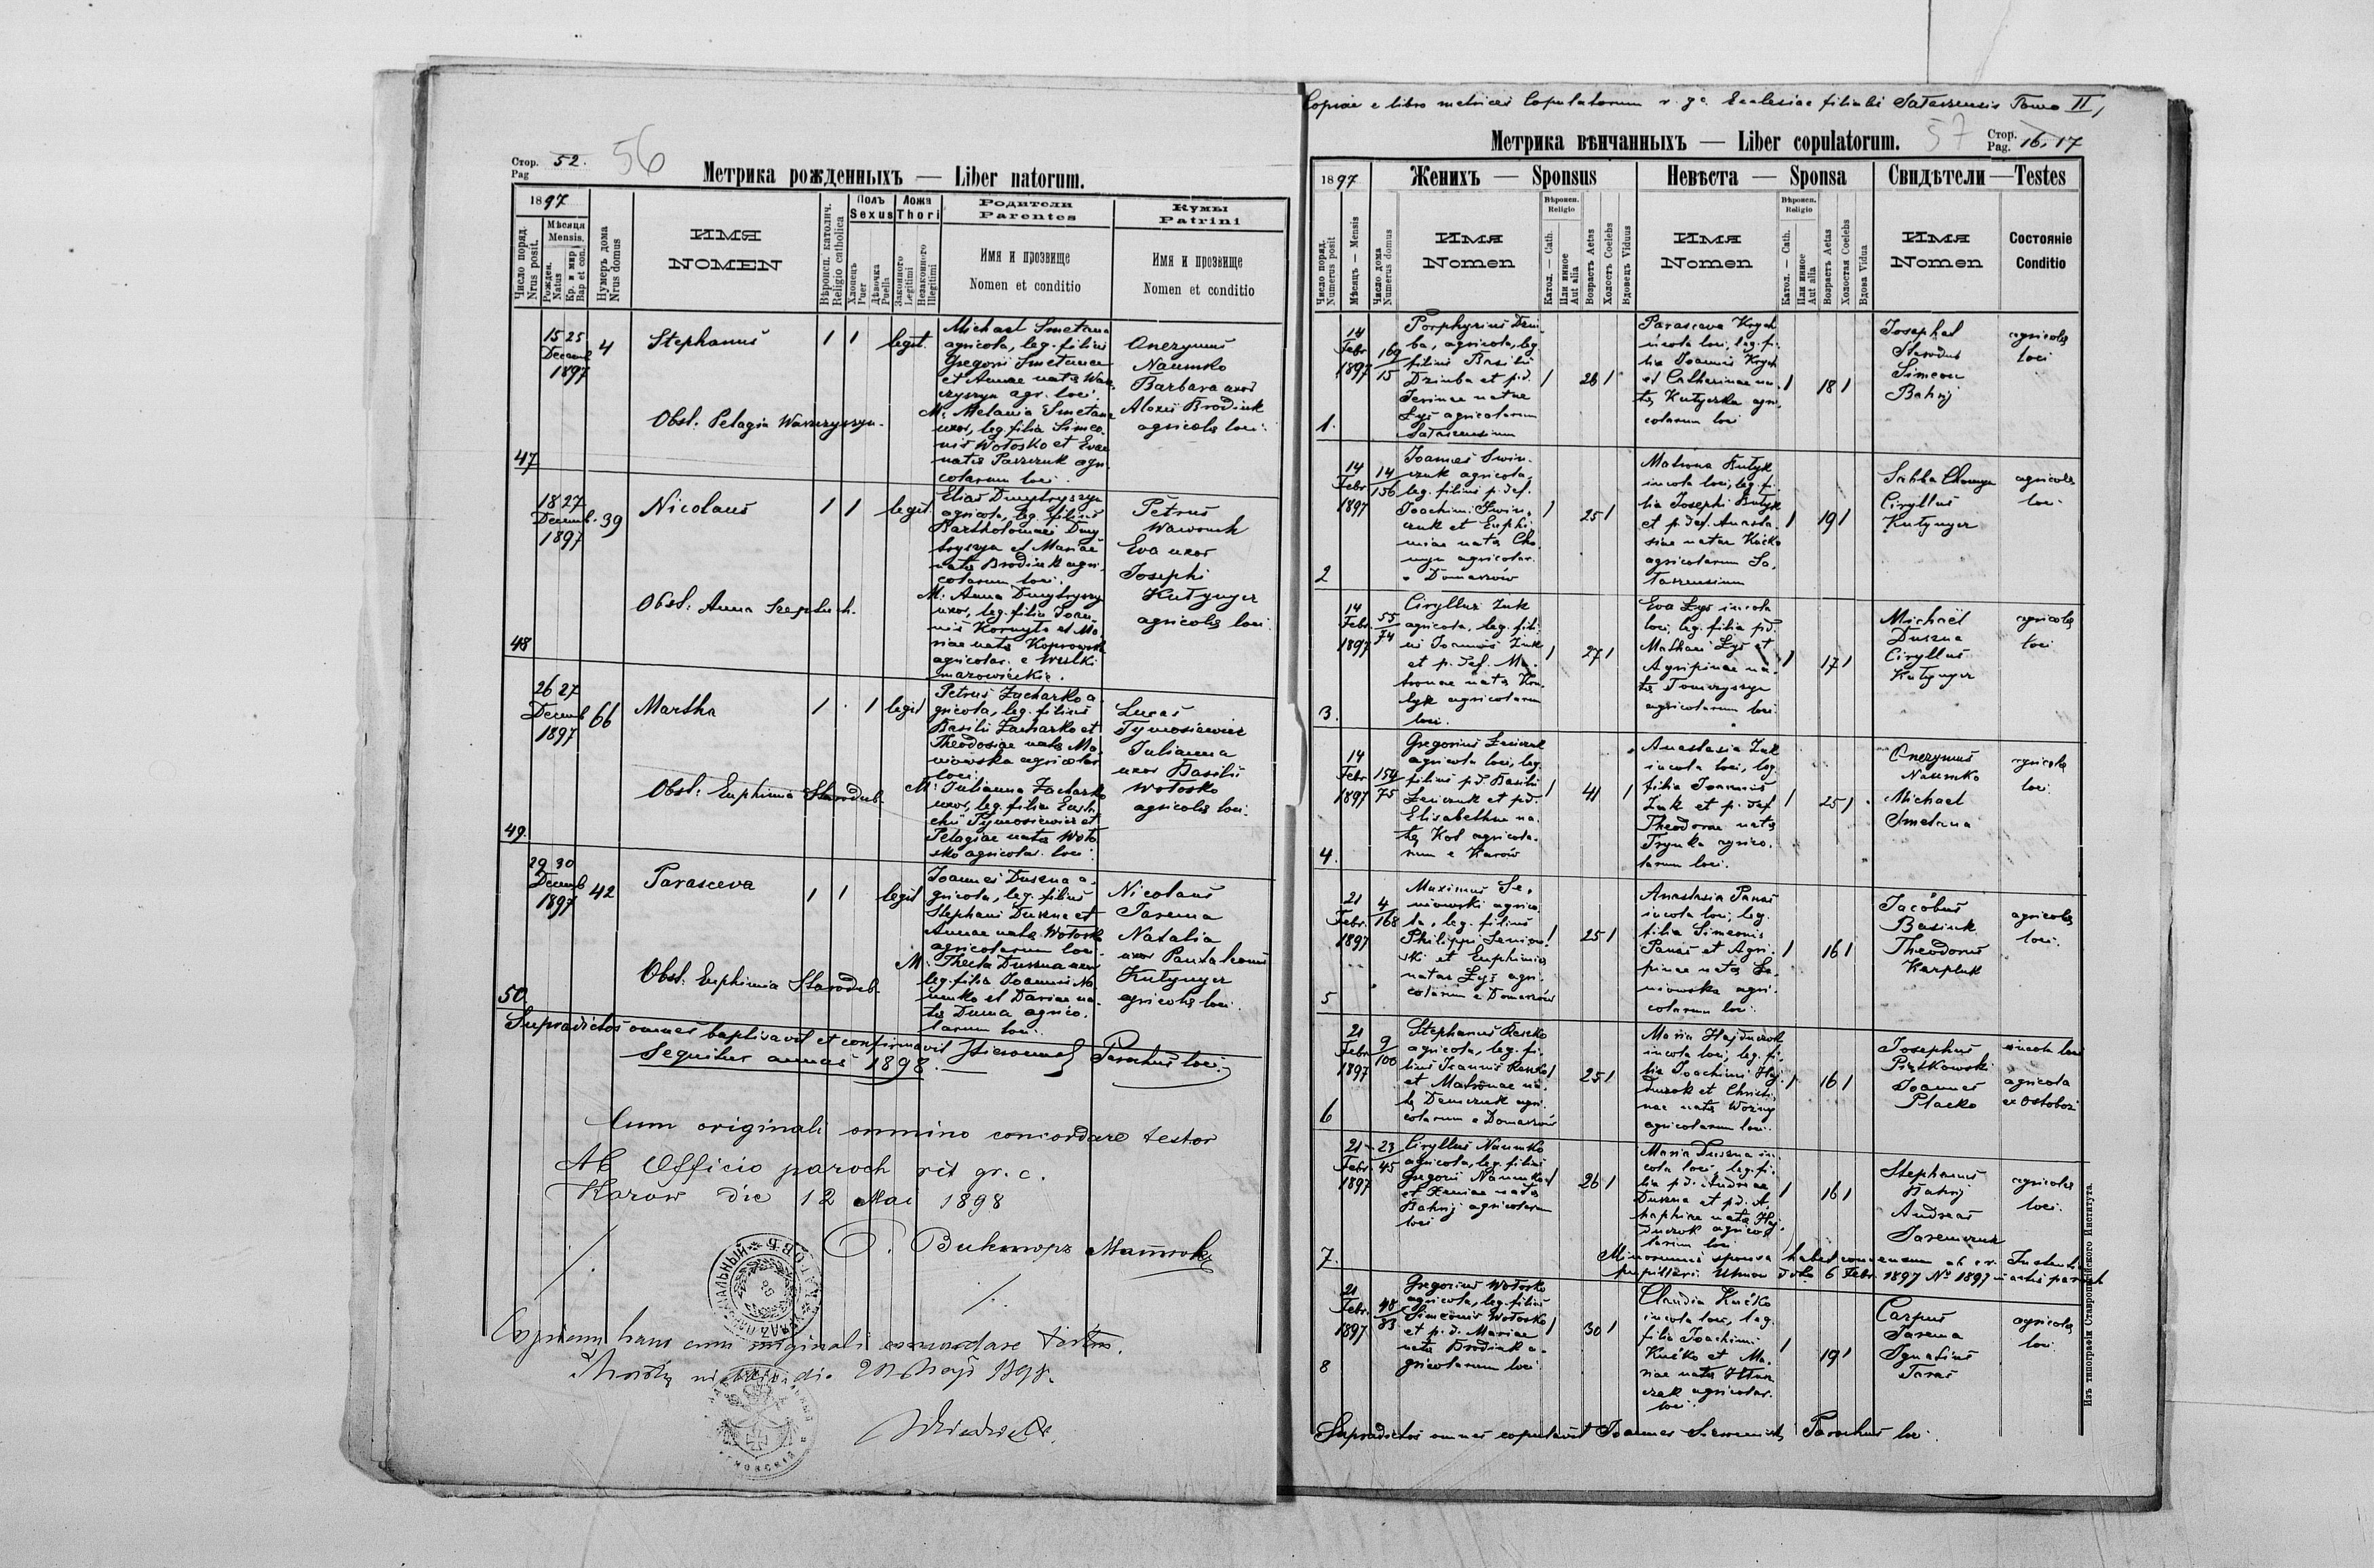 Стор. 52.
Pag
56
Метрика рожденныхъ — Liber natorum.
1897
Число поряд.
Nrus posit.
Мѣсяця
Mensis.
Рожден.
Natus
Кр. и мир
Bap et con.
Нумеръ дома
Nrus domus
ИМЯ
NOMEN
Вѣроисп. католич.
Religio catholica
Полъ
Sexus
Хлопець
Puer
Дѣвочка
Puella
Ложа
Thori
Законного
Legitimi
Незаконного
Illegitimi
Родители
Parentes
Имя и прозвище
Nomen et conditio
Кумы
Patrini
Имя и прозвище
Nomen et conditio
47
15 25
Decemb
1897
4
Stephanus
1 1
legit.
Obst. Pelagia Waszczyszyn.
Michael Smetana
agricola, leg. filius
Gregorii Smetana
et Annae nata Wasz
czyszyn agr. loci.
M: Melania Smetana
uxor, leg. filia Simeo
nis Wołosko et Evae
nata Paszczuk agri
colarum loci.
Onezymus
Naumko
Barbara uxor
Alexii Brodiuk
agricola loci.
48
18 27
Decemb.
1897
39
Nicolaus
1 1
legit.
Obst: Anna
Elias Dmytryszyn
agricola, leg. filius
Bartholomaei Dmy
tryszyn et Mariae
nata Brodiuk agri
colarum loci.
M: Anna Dmytryszyn
uxor, leg. filia Joan
nis Kornyło et Ma
riae nata
agricolar. e Wulki
mazowieckie.
Petrus
Wawruk
Eva uxor
Josephi
Kułynycz
agricola loci.
49.
26 27
Decemb
1897
66
Martha
1 . 1
legit
Obst: Euphimia Starodub.
Petrus Zacharko a
gricola, leg. filius
Basilii Zacharko et
Theodosiae nata
agricolar
loci.
M: Julianna Zacharko
uxor, leg. filia
Tymosiewicz et
Pelagiae nata Woło
sko agricolar. loci.
Lucas
Tymosiewicz
Julianna
uxor Basilii
Wołosko
agricola loci.
50
29 30
Decemb
1897
42
Parasceva
1 1
legit
Obst: Euphimia Starodub.
Joannes Duszna a
gricola, leg. filius
Stephani Duszna et
Annae nata Wołosko
agricolarum loci
M: Thecla Duszna uxor
leg. filia Joannis Na
umko et Dariae na
ta Duma agrico
larum loci.
Nicolaus
Jarema
Natalia
uxor
Kułynycz
agricola loci.
Supradictos omnes baptisavit et confirmavit Parochus loci.
Sequitur annus 1898.
Cum originali omnino concordare testor
Ab Officio paroch rit gr. c.
Karow die 12 Mai 1898
Викторъ
Copiam hanc cum originali concordare testor.
57
Copiae e libro metrices Copulatorum r. gc. Ecclesiae filialis Sałaszensis Tomo II,
Метрика вѣнчанныхъ — Liber copulatorum.
Стор.
Pag. 16. 17
1897
Женихъ — Sponsus
Невѣста — Sponsa
Свидѣтели — Testes
Число поряд.
Numerus posit
Мѣсяцъ — Mensis
Число дома
Numerus domus
Имя
Nomen
Вѣроисп.
Religio
Катол. — Cath.
Или инное
Aut alia
Возрастъ Aetas
Холостъ Coelebs
Вдовецъ Viduus
Имя
Nomen
Вѣроисп.
Religio
Катол. — Cath.
Или инное
Aut alia
Возрастъ Aetas
Холостая Coelebs
Вдова Vidua
Имя
Nomen
Состояніе
Conditio
1.
14
Febr
1897
169
15
Porphyrius Dziu
ba, agricola, leg
filius Basilii
Dziuba et p.d.
Xeniae natae
Łyś agricolarum
Sałaszensium
1 26 1
Parasceva Krych
incola loci, leg. fi
lia Joannis Krych
et Catharinae na
ta Kutyczka agri
colarum loci
1 18 1
Josaphat
Starodub
Simeon
Bahrij
agricola
loci
2
14
Febr
1897
14
156
Joannes Swin
czuk agricola,
leg. filius p. def.
Joachimi Swin
czuk et Euphi
miae nata Cho
myn agricolar.
e Domaszów
1 25 1
Matrona Kułyk
incola loci, leg. fi
lia Josephi Kułyk
et p. def. Anasta
siae natae Kućko
agricolarum Sa
łaszensium
1 19 1
Sabba Chomyn
Ciryllus
Kułynycz
agricola
loci
3.
14
Febr.
1897
55
74
Ciryllus Żuk
agricola, leg. fili
us Joannis Żuk
et p. def. Ma
tronae nata
agricolarum
loci.
1 27 1
Eva Łyś incola
loci, leg. filia p.d.
Mathaei Łyś et
Agripinae na
ta Tomczyszyn
agricolarum loci.
1 17 1
Michaël
Duszna
Ciryllus
Kułynycz
agricola
loci
4.
14
Febr
1897
154
75
Gregorius
agricola loci, leg.
filius p.d. Basilii
et p.d.
Elisabethae na
ta Kot agricola
rum e Karów
1 41 1
Anastasia Żuk
incola loci, leg
filia Joannis
Żuk et p. def
Theodorae nata
Frynka agrico
larum loci.
1 25 1
Onezymus
Naumko
Michael
Smetana
agricola
loci.
5
21
Febr.
1897
4
168
Maximus Se
niowski agrico
la, leg. filius
Philippi Seniow
ski et Euphimiae
natae Łyś agri
colarum e Domaszów
1 25 1
Anastasia Panas
incola loci, leg.
filia Simeonis
Panas et Agri
pinae nata Se
niowska agri
colarum loci.
1 16 1
Jacobus
Basiuk
Theodorus
Karpluk
agricola
loci.
6
21
Febr
1897
9
100
Stephanus Reszko
agricola, leg. fi
lius Joannis Reszko
et Matronae na
ta Demczuk agri
colarum e Domaszów
1 25 1
Maria Hajduczok
incola loci, leg. fi
lia Joachimi Haj
duczok et Christi
nae nata Woźny
agricolarum loci.
1 16 1
Josephus
Piątkowski
Joannes
Placko
incola loci
agricola
ex Ostoboż
7.
21
Febr.
1897
23
45
Ciryllus Naumko
agricola, leg. filius
Gregorii Naumko
et Xeniae nata
Bahrij agricolarum
loci
1 26 1
Maria Duszna in
cola loci, leg. fi
lia p.d. Andreae
Duszna et p.d. A
haphiae nata Haj
duczok agricol
larum loci
1 16 1
Stephanus
Bahrij
Andreas
Jaremczuk
agricola
loci.
Minorennis sponsa habet consensum ab
pupillari Uhnow ddto 6 Febr. 1897 No 1897 in actis paroch
8
21
Febr.
1897
48
83
Gregorius Wołosko
agricola, leg. filius
Simeonis Wołosko
et p.d. Mariae
nata Brodiuk a
gricolarum loci
1 30 1
Claudia Kućko
incola loci, leg.
filia Joachimi
Kućko et Ma
riae nata
agricolar.
loci.
1 19 1
Carpus
Jarema
Ignatius
Taras
agricola
loci.
Supradictos omnes copulavit Joannes Parochus loci.
Изъ типографіи Ставропигійского Института.